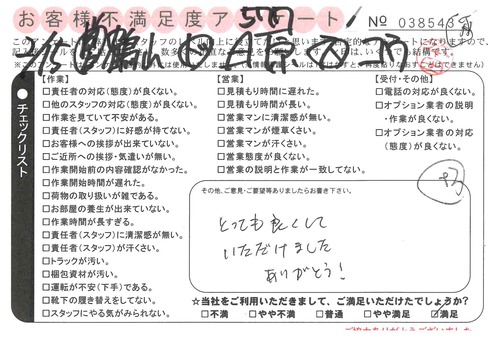 お客様不満足度アンケート
No 038548
チェックリスト
【作業】
□責任者の対応(態度)が良くない。
□他のスタッフの対応(態度)が良くない。
□作業を見ていて不安がある。
□責任者(スタッフ)に好感が持てない。
□お客様への挨拶が出来ていない。
□ご近所への挨拶・気遣いが無い。
□作業開始前の内容確認がなかった。
□作業開始時間が遅れた。
□荷物の取り扱いが雑である。
□お部屋の養生が出来ていない。
□作業時間が長すぎる。
□責任者(スタッフ)に清潔感が無い。
□責任者(スタッフ)が汗くさい。
□トラックが汚い。
□梱包資材が汚い。
□運転が不安(下手)である。
□靴下の履き替えをしてない。
□スタッフにやる気がみられない。
【営業】
□見積もり時間に遅れた。
□見積もり時間が長い。
□営業マンに清潔感が無い。
□営業マンが煙草くさい。
□営業マンが汗くさい。
□営業態度が良くない。
□営業の説明と作業が一致してない。
【受付・その他】
□電話の対応が良くない。
□オプション業者の説明
・作業が良くない。
□オプション業者の対応
(態度)が良くない。
その他、ご意見・ご要望等ありましたらお書き下さい。
とっても良くして
いただけました
ありがとう!
☆当社をご利用いただきまして、ご満足いただけたでしょうか?
□不満 □やや不満 □普通 □やや満足 ☑満足